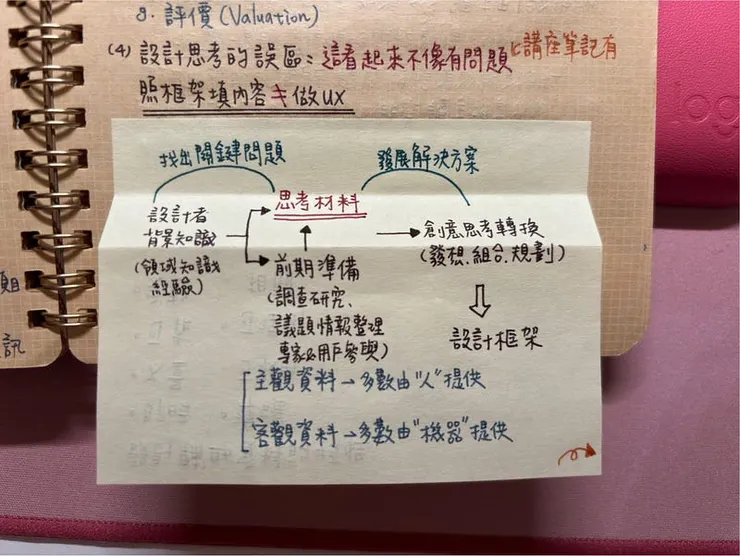 8. 評價 (Valuation)
(4) 設計思考的誤區：這看起來不像有問題
講座筆記有
照框架填內容 ≠ 做UX
找出關鍵問題
發展解決方案
思考材料
設計者
背景知識
(領域知識
經驗)
前期準備
(調查研究、
議題情報整理
專家&用戶參與)
創意思考轉換
(發想、組合、規劃)
設計框架
主觀資料→多數由"人"提供
客觀資料→多數由"機器"提供
訊